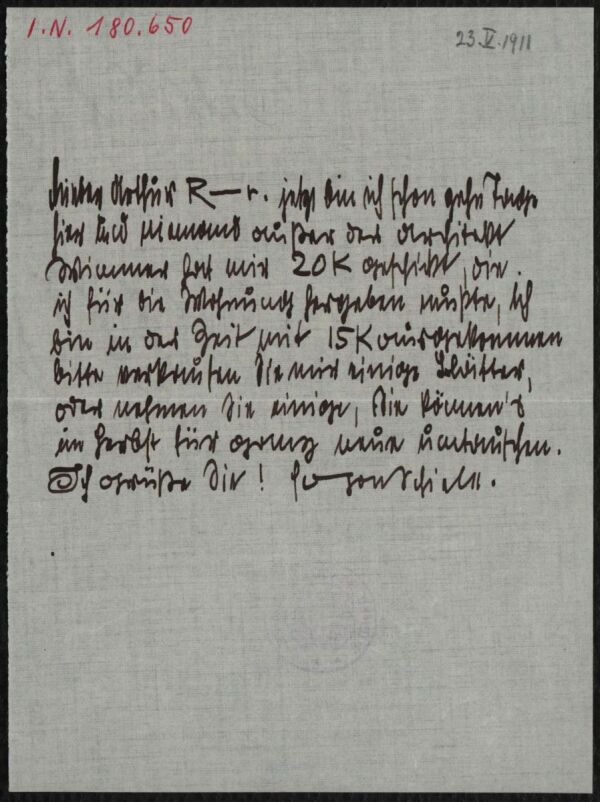 I.N. 180.650
23.V.1911
Lieber Arthur R—r. jetzt bin ich schon zehn Tage
hier und niemand außer der Architekt
Wimmer hat mir 20K geschickt, die.
ich für die Wohnung hergeben mußte, Ich
bin in der Zeit mit 15K ausgekommen
bitte verkaufen Sie mir einige Blätter,
oder nehmen Sie einige, Sie können's
im Herbst für ganz neue umtauschen.
Ich grüße Sie! Egon Schiele.